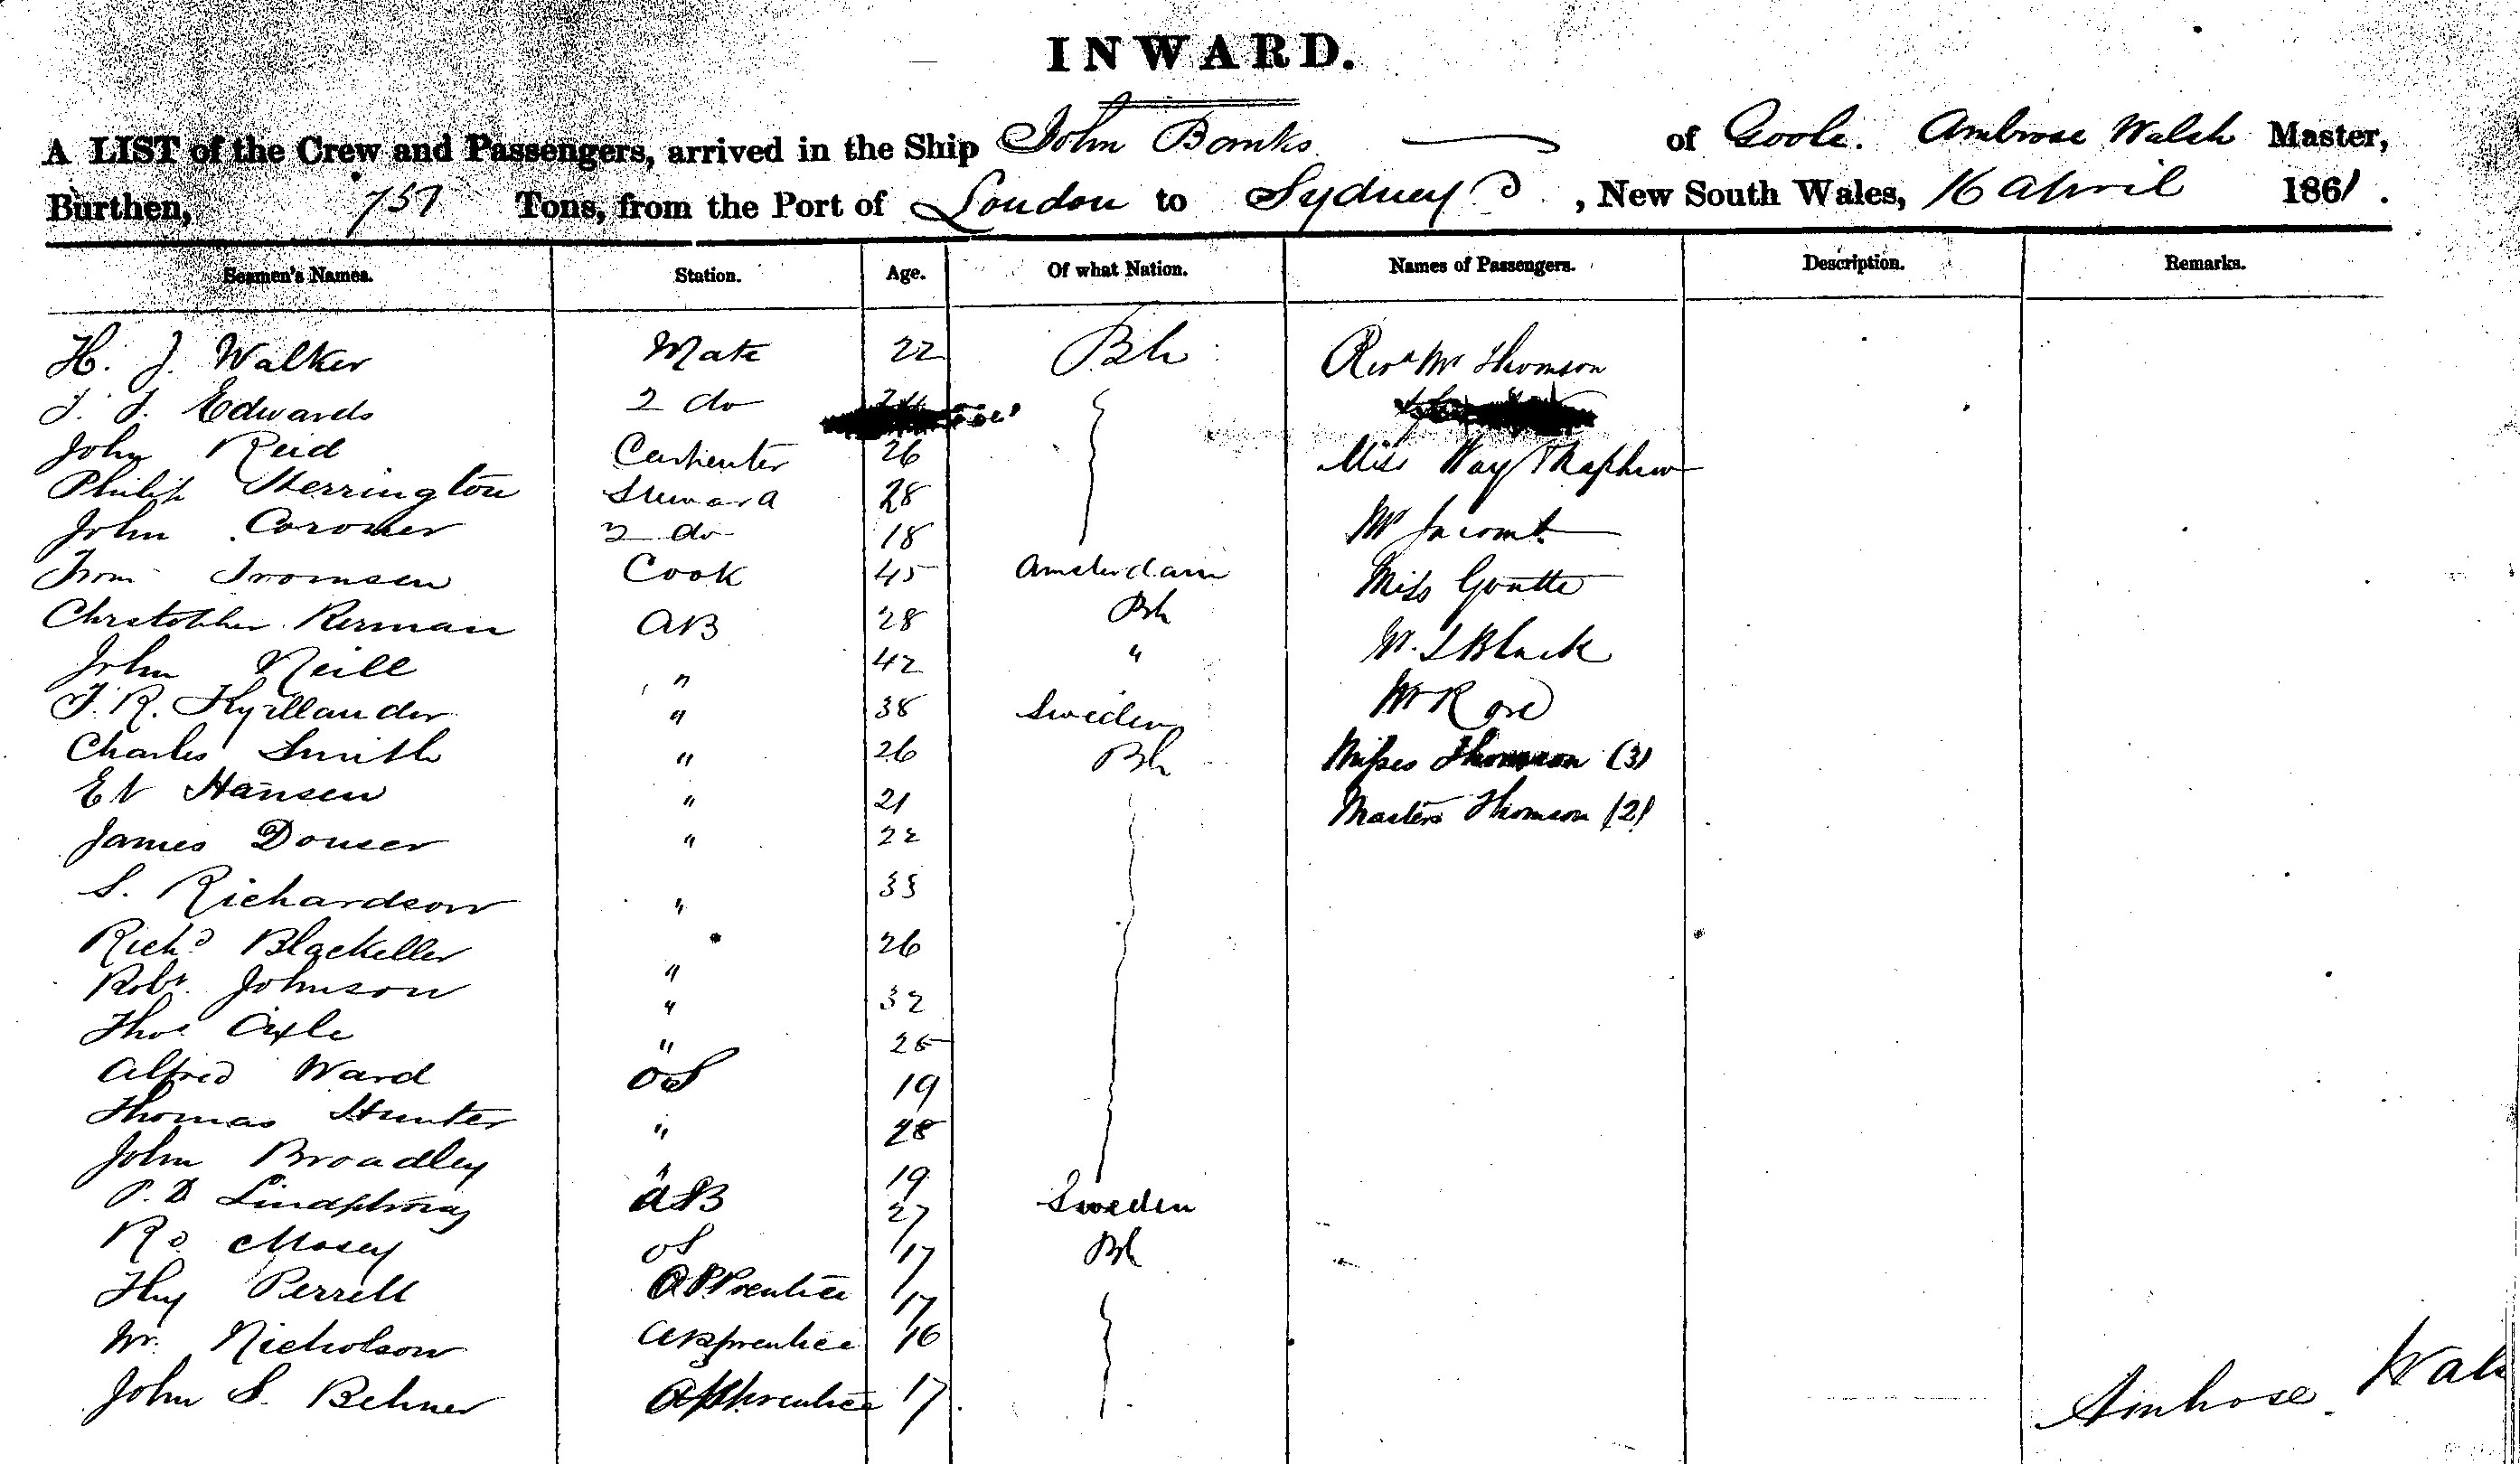 INWARD.
A LIST of the Crew and Passengers, arrived in the Ship John Banks of Goole. Ambrose Walsh Master,
Burthen, 757 Tons, from the Port of London to Sydney, New South Wales, 16 April 1861.
Seamen's Names. Station. Age. Of what Nation. Names of Passengers. Description. Remarks.
H. J. Walker Mate 22 Bh Revd Mr Thomson
J. J. Edwards 2 do 24
John Reid Carpenter 26 Miss Way
Philip Herrington Steward 28
John 2 do 18 Mr Jacomb
Cook 45 Amsterdam Miss
Christopher Rerman AB 28 Bh
John Neill " 42 " Black
J. R. " 38 Sweden Mr Rose
Charles Smith " 26 Bh Misses Thomson (3)
Hansen " 21 Masters Thomson (2)
James Douser " 22
S. Richardson " 33
Richd Blackeller 26
Robt. Johnson " 32
Thos " 25
Alfred Ward OS 19
Thomas Hunter " 28
John Broadley " 19
P. D AB 27 Sweden
Rd. Mosey OS 17 Bh
Hy Perrell Apprentice 17
Wm. Nicholson Apprentice 16
John S. Behner Apprentice 17
Ambrose